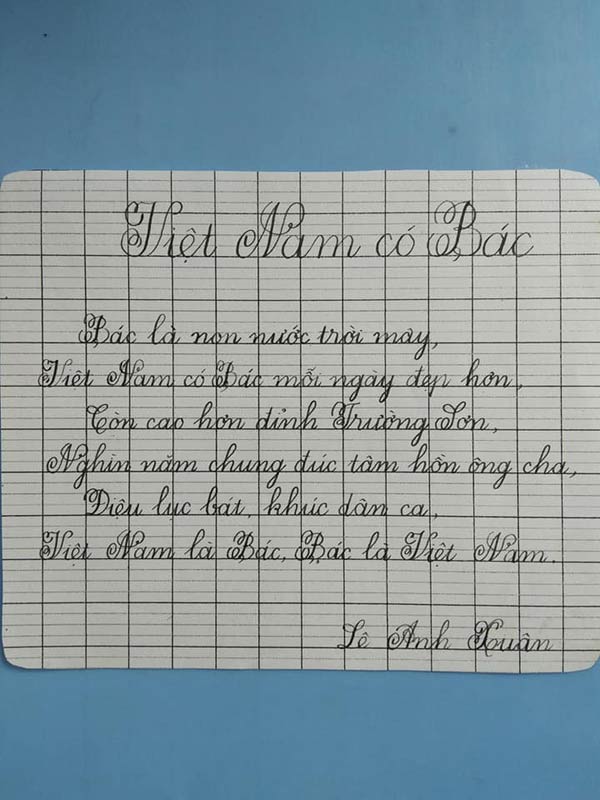 Việt Nam có Bác
Bác là non nước trời mây,
Việt Nam có Bác mỗi ngày đẹp hơn,
Còn cao hơn đỉnh Trường Sơn,
Nghìn năm chung đúc tâm hồn ông cha,
Điệu lục bát, khúc dân ca,
Việt Nam là Bác, Bác là Việt Nam.
Lê Anh Xuân